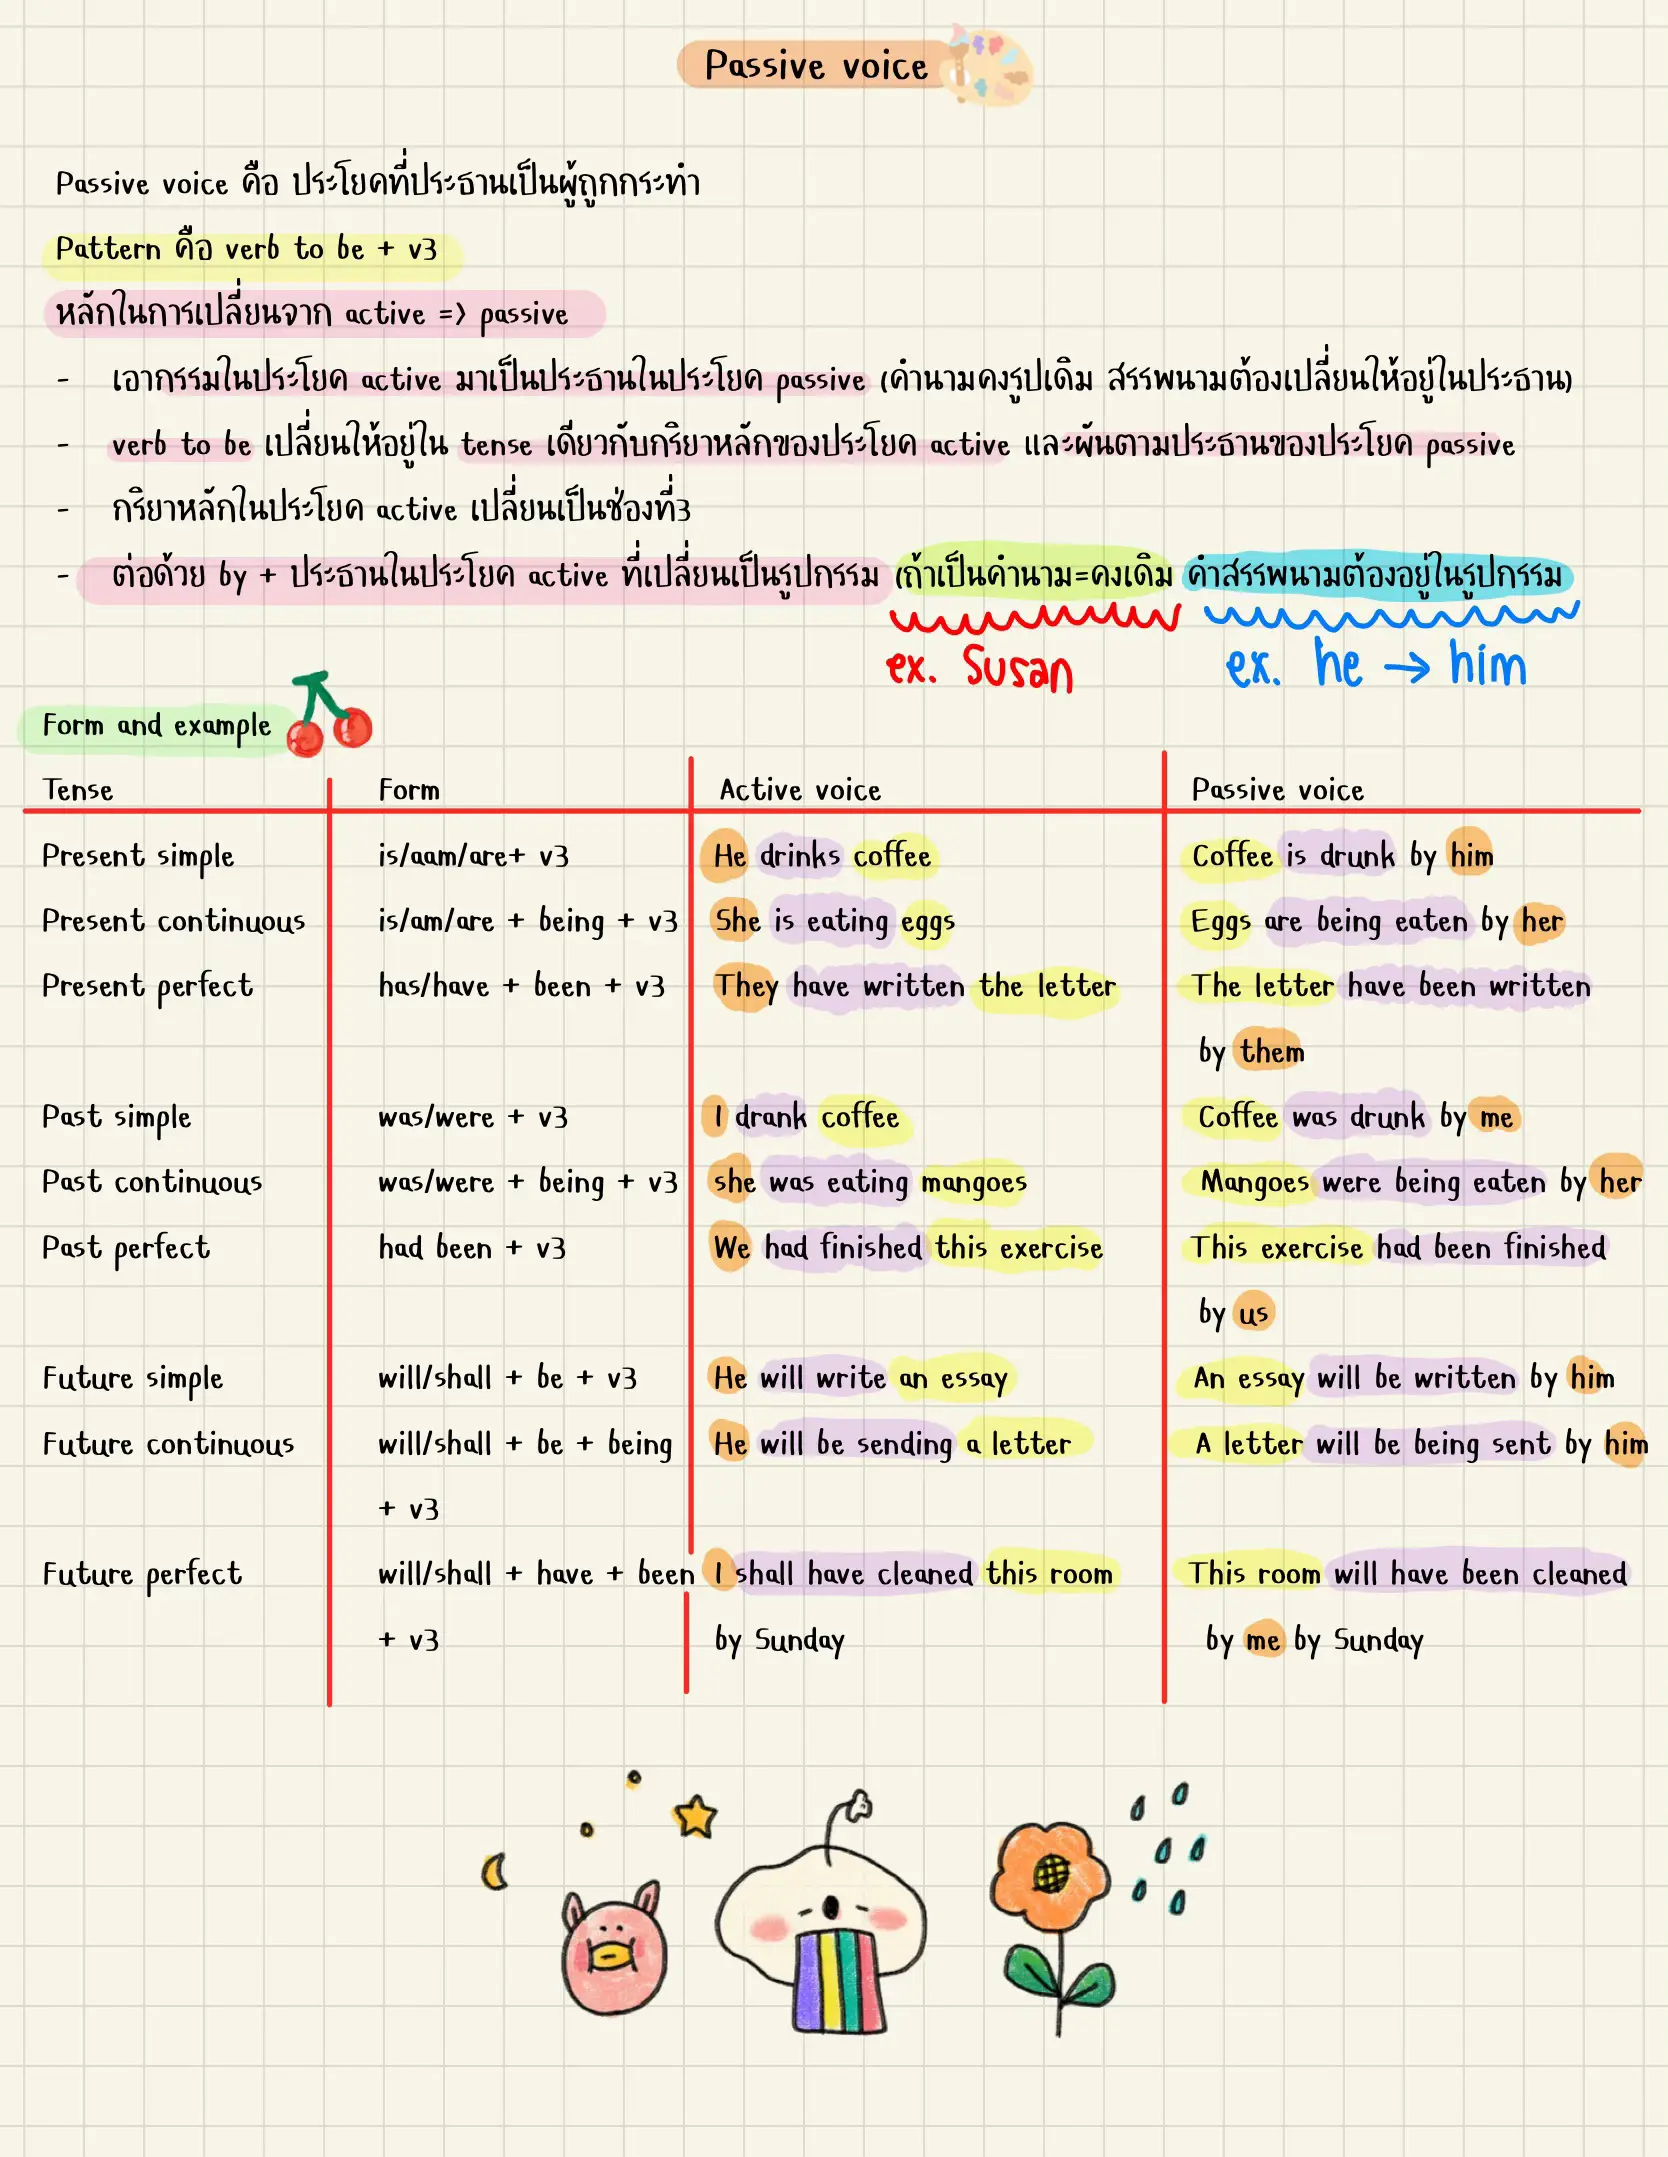 Passive voice
Passive voice คือ ประโยคที่ประธานเป็นผู้ถูกกระทำ
Pattern คือ verb to be + v3
หลักในการเปลี่ยนจาก active => passive
- เอากรรมในประโยค active มาเป็นประธานในประโยค passive (คำนามคงรูปเดิม สรรพนามต้องเปลี่ยนให้อยู่ในประธาน)
- verb to be เปลี่ยนให้อยู่ใน tense เดียวกับกริยาหลักของประโยค active และผันตามประธานของประโยค passive
- กริยาหลักในประโยค active เปลี่ยนเป็นช่องที่3
- ต่อด้วย by + ประธานในประโยค active ที่เปลี่ยนเป็นรูปกรรม (ถ้าเป็นคำนาม=คงเดิม คำสรรพนามต้องอยู่ในรูปกรรม
ex. Susan ex. he → him
Form and example
Tense Form Active voice Passive voice
Present simple is/aam/are+ v3 He drinks coffee Coffee is drunk by him
Present continuous is/am/are + being + v3 She is eating eggs Eggs are being eaten by her
Present perfect has/have + been + v3 They have written the letter The letter have been written
by them
Past simple was/were + v3 I drank coffee Coffee was drunk by me
Past continuous was/were + being + v3 she was eating mangoes Mangoes were being eaten by her
Past perfect had been + v3 We had finished this exercise This exercise had been finished
by us
Future simple will/shall + be + v3 He will write an essay An essay will be written by him
Future continuous will/shall + be + being He will be sending a letter A letter will be being sent by him
+ v3
Future perfect will/shall + have + been I shall have cleaned this room This room will have been cleaned
+ v3 by Sunday by me by Sunday